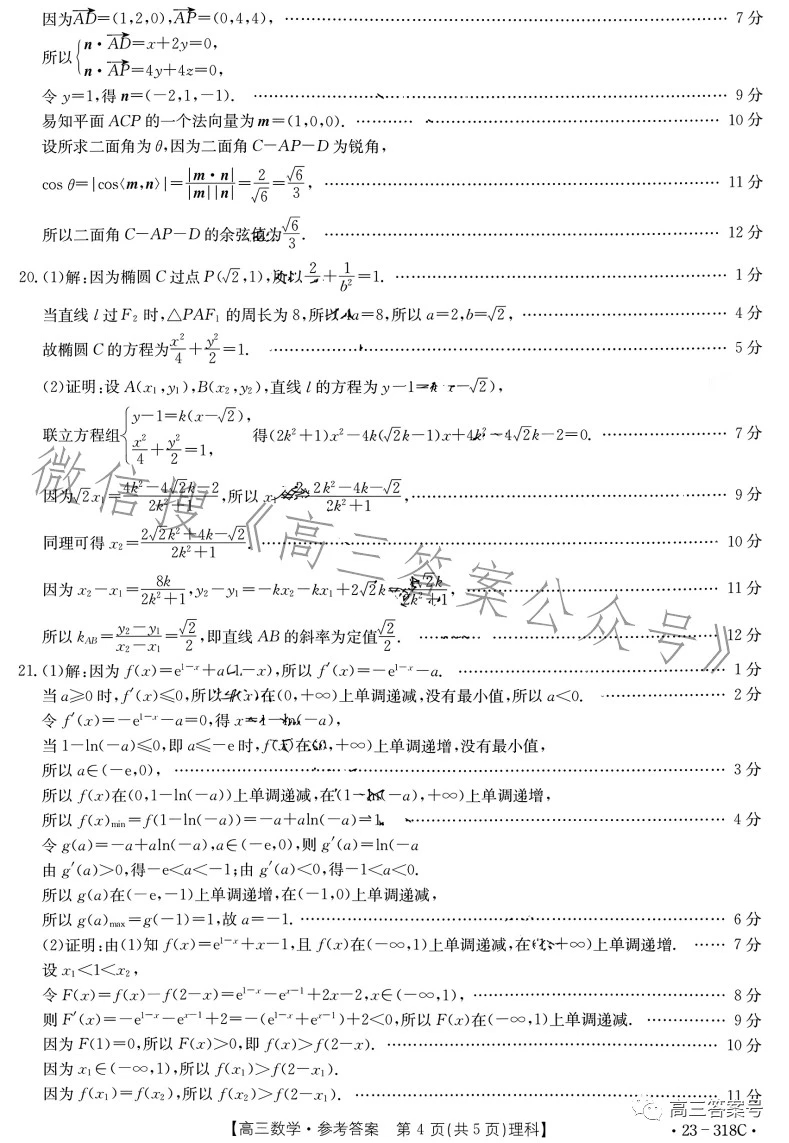 因为AD=(1,2,0),AP=(0,4,4), 7 分
所以{n·AD=x+2y=0,
n·AP=4y+4z=0,
令 y=1,得 n=(-2,1,-1). 9 分
易知平面 ACP 的一个法向量为 m=(1,0,0). 10 分
设所求二面角为 θ,因为二面角 C-AP-D 为锐角,
cos θ=|cos⟨m,n⟩|=|m·n|/|m||n|=2/√6=√6/3, 11 分
所以二面角 C-AP-D 的余弦值为√6/3. 12 分
20.(1)解:因为椭圆 C 过点 P(√2,1),所以 2/a²+1/b²=1. 1 分
当直线 l 过 F₂ 时,△PAF₁ 的周长为 8,所以 4a=8,所以 a=2,b=√2, 4 分
故椭圆 C 的方程为x²/4+y²/2=1. 5 分
(2)证明:设 A(x₁,y₁),B(x₂,y₂),直线 l 的方程为 y-1=k(x-√2),
联立方程组{y-1=k(x-√2),
x²/4+y²/2=1, 得(2k²+1)x²-4k(√2k-1)x+4k²-4√2k-2=0. 7 分
因为√2x₁=(4k²-4√2k-2)/(2k²+1),所以 x₁=(2√2k²-4k-√2)/(2k²+1), 9 分
同理可得 x₂=(2√2k²+4k-√2)/(2k²+1). 10 分
因为 x₂-x₁=8k/(2k²+1),y₂-y₁=-kx₂-kx₁+2√2k=4√2k/(2k²+1), 11 分
所以 k_AB=(y₂-y₁)/(x₂-x₁)=√2/2,即直线 AB 的斜率为定值√2/2. 12 分
21.(1)解:因为 f(x)=e^(1-x)+a(1-x),所以 f′(x)=-e^(1-x)-a. 1 分
当 a≥0 时,f′(x)≤0,所以 f(x)在(0,+∞)上单调递减,没有最小值,所以 a<0. 2 分
令 f′(x)=-e^(1-x)-a=0,得 x=1-ln(-a),
当 1-ln(-a)≤0,即 a≤-e 时,f(x)在(0,+∞)上单调递增,没有最小值,
所以 a∈(-e,0), 3 分
所以 f(x)在(0,1-ln(-a))上单调递减,在(1-ln(-a),+∞)上单调递增,
所以 f(x)min=f(1-ln(-a))=-a+aln(-a)=1. 4 分
令 g(a)=-a+aln(-a),a∈(-e,0),则 g′(a)=ln(-a
由 g′(a)>0,得-e<a<-1;由 g′(a)<0,得-1<a<0.
所以 g(a)在(-e,-1)上单调递增,在(-1,0)上单调递减,
所以 g(a)max=g(-1)=1,故 a=-1. 6 分
(2)证明:由(1)知 f(x)=e^(1-x)+x-1,且 f(x)在(-∞,1)上单调递减,在(1,+∞)上单调递增. 7 分
设 x₁<1<x₂,
令 F(x)=f(x)-f(2-x)=e^(1-x)-e^(x-1)+2x-2,x∈(-∞,1), 8 分
则 F′(x)=-e^(1-x)-e^(x-1)+2=-(e^(1-x)+e^(x-1))+2<0,所以 F(x)在(-∞,1)上单调递减. 9 分
因为 F(1)=0,所以 F(x)>0,即 f(x)>f(2-x). 10 分
因为 x₁∈(-∞,1),所以 f(x₁)>f(2-x₁).
因为 f(x₁)=f(x₂),所以 f(x₂)>f(2-x₁). 11 分
【高三数学·参考答案 第 4 页(共 5 页)理科】 ·23-318C·
微信搜《高三答案公众号》
高三答案号